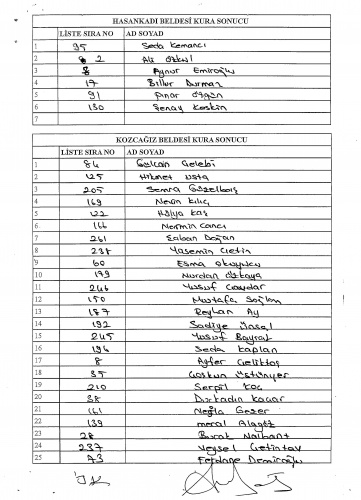 HASANKADI BELDESİ KURA SONUCU
LİSTE SIRA NO AD SOYAD
1 95 Seda Kemancı
2 2 Ali
3 8 Aynur Emiroğlu
4 17 Billur Durmaz
5 91 Pınar Özgün
6 130 Şenay Keskin
7
KOZCAĞIZ BELDESİ KURA SONUCU
LİSTE SIRA NO AD SOYAD
1 84 Gülcan Çelebi
2 125 Hikmet Usta
3 205 Semra Güzelbaş
4 169 Nevin Kılıç
5 122 Hülya Kaş
6 166 Nermin Cancı
7 261 Şaban Doğan
8 238 Yasemin Çetin
9 60 Esma Okuyucu
10 179 Nurdan Özkaya
11 246 Yusuf
12 150 Mustafa Sağlam
13 187 Reyhan Ay
14 192 Sadiye Ünsal
15 245 Yusuf Bayrak
16 194 Seda Kaplan
17 8 Ayfer Çeliktaş
18 35 Coşkun Üstünyer
19 210 Serpil Koç
20 38 Kadın Kaçar
21 161 Nejla Gezer
22 139 Meral Alagöz
23 28 Burak Nalbant
24 237 Veysel Çetintay
25 73 Ferdane Demircioğlu